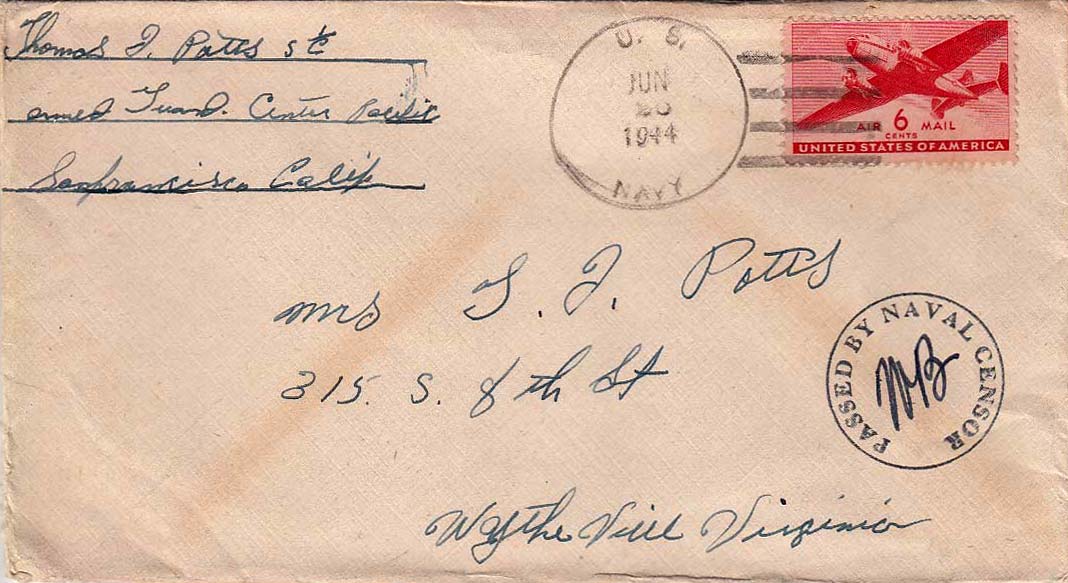 Thomas J. Potts Stc
armed Guard. Center Pacific
Sanfrancisco Calif
U. S.
JUN
20
1944
NAVY
AIR 6 MAIL
CENTS
UNITED STATES OF AMERICA
Mrs T. J. Potts
315. S. 8th St
PASSED BY NAVAL CENSOR
WB
Wythe Vill Virginia